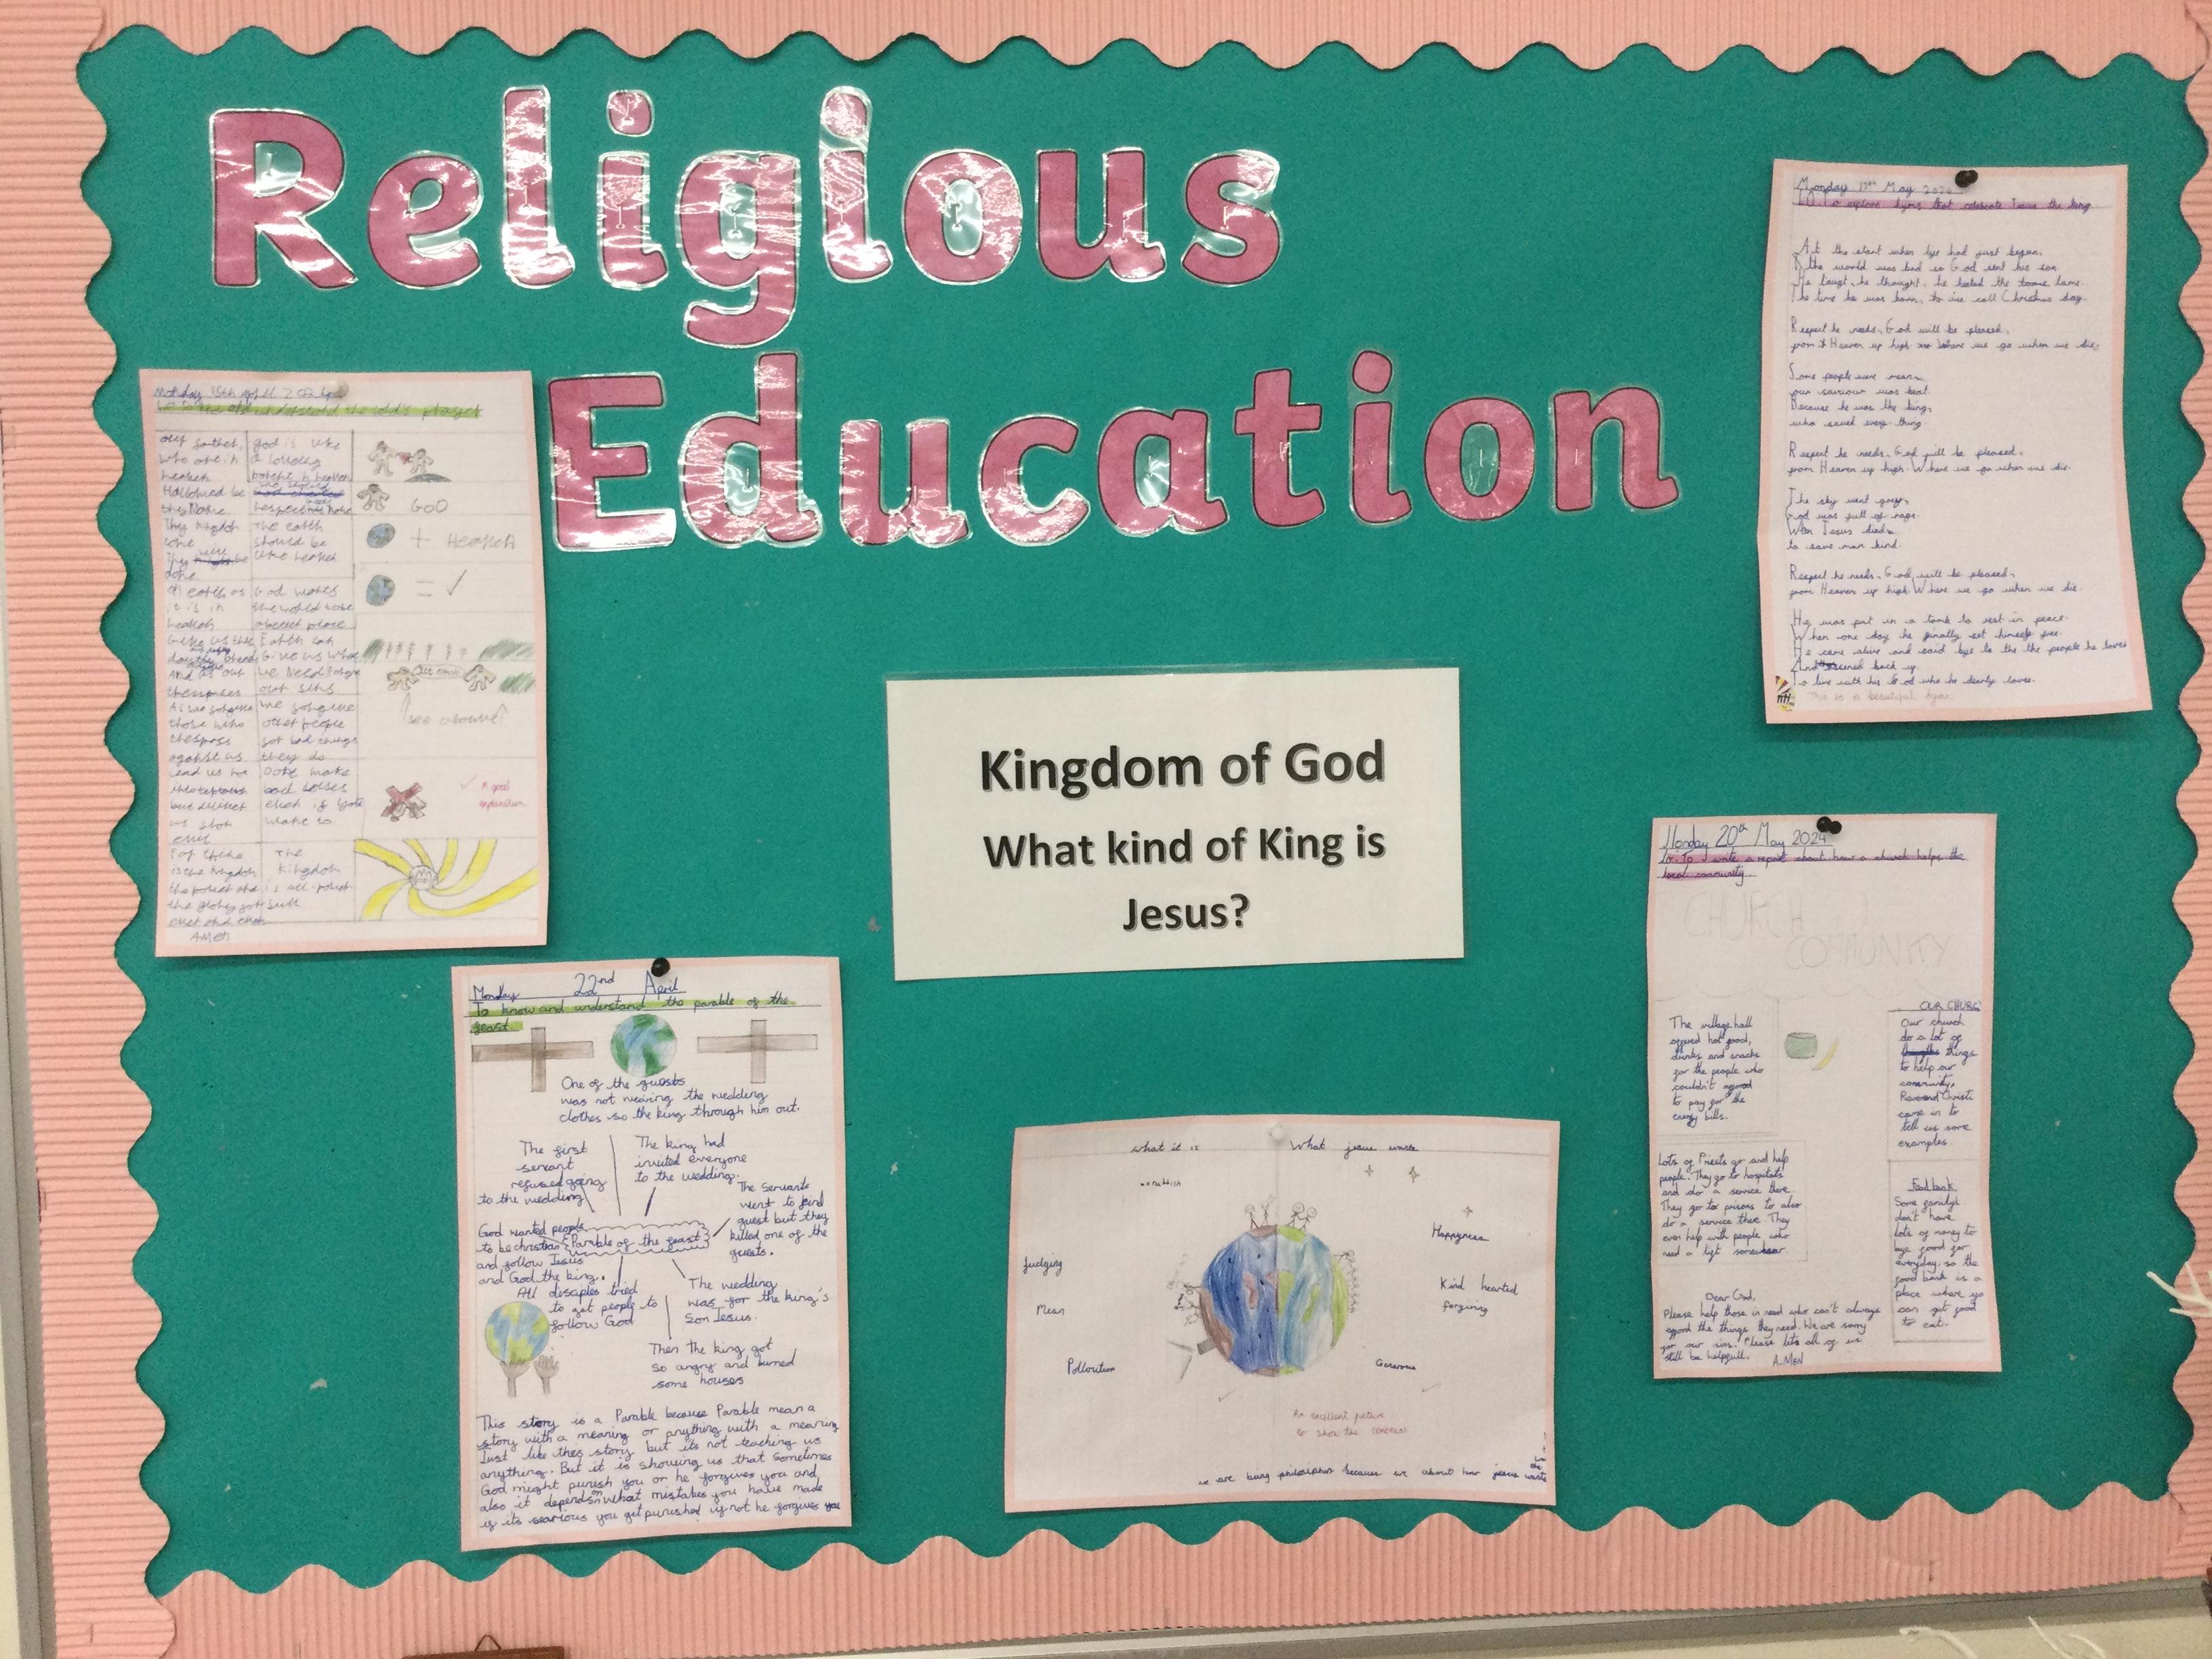 Religious
Education
Monday 15th April 2024
our father,
who are in
heaven
Hallowed be
thy Name
Thy kingdom
come
Thy will be
done
on earth as
it is in
heaven
those who
against us
lead us not
but deliver
us from
evil
For thine
is the kingdom
the power and
the glory for
ever and ever
AMEN
god is like
a
in heaven
The earth
should be
like heaven
God wants
Earth can
Give us what
we need
our sins
we forgive
other people
for bad things
they do
Dont make
bad
even if you
want to
The
kingdom
is all
GOD
+ Heaven
= ✓
see above
✓ A good
explanation
Kingdom of God
What kind of King is
Jesus?
Monday 22nd April
To know and understand the parable of the
feast
One of the guests
was not wearing the wedding
clothes so the king through him out.
The first
servant
refused going
to the wedding
The king had
invited everyone
to the wedding.
The servants
went to find
guest but they
killed one of the
guests.
God wanted people
to be christian
and follow Jesus
and God the king.
Parable of the feast
All disciples tried
to get people to
follow God
The wedding
was for the king's
Son Jesus.
Then the king got
so angry and burned
some houses
This story is a Parable because Parable mean a
story with a meaning or anything with a meaning
Just like this story but its not teaching us
anything. But it is showing us that sometimes
God might punish you or he forgives you and
also it depends on what mistakes you have made
if its searious you get punished if not he forgives you
what it is
What jesus wants
rubbish
Judging
Mean
Polloution
Happyness
Kind hearted
forgiving
Generous
An excellent picture
to show the contrast
we are being philosiphers because we about how jesus wants
Monday 13th May 2024
LO To explore hyms that celebrate Jesus the king
At the start when life had just begun,
the world was bad so God sent his son
He taugt, he thought, he healed the lame.
The time he was born, to we call Christmas day.
Respect he needs, God will be pleased,
from Heaven up high where we go when we die.
Some people were mean,
our saviour was beat.
Because he was the king,
who saved every thing.
Respect he needs, God will be pleased,
from Heaven up high. Where we go when we die.
The sky went grey,
God was full of rage.
When Jesus died,
to save man kind.
Respect he needs, God will be pleased,
from Heaven up high. Where we go when we die.
He was put in a tomb to rest in peace.
When one day he finally set himself free.
He came alive and said bye to the the people he loves
And back up
To live with his God who he dearly loves.
This is a beautiful hymn
Monday 20th May 2024
L.O. To write a report about how a church helps the
local community
CHURCH
COMMUNITY
The village hall
offered hot food,
drinks and snacks
for the people who
couldn't afford
to pay for the
energy bills.
OUR CHURC
Our church
do a lot of
things
to help our
community,
Reverend Christi
came in to
tell us some
examples.
Lots of Priests go and help
people. They go to hospitals
and do a service there.
They go to prisons to also
do a service there. They
even help with people who
need a lift somewhear
Food bank
Some family's
don't have
lots of money to
bye food for
everyday, so the
food bank is a
place where yo
can get food
to eat.
Dear God,
Please help those in need who can't always
afford the things they need. We are sorry
for our sins. Please lets all of us
still be helpfull. AMEN